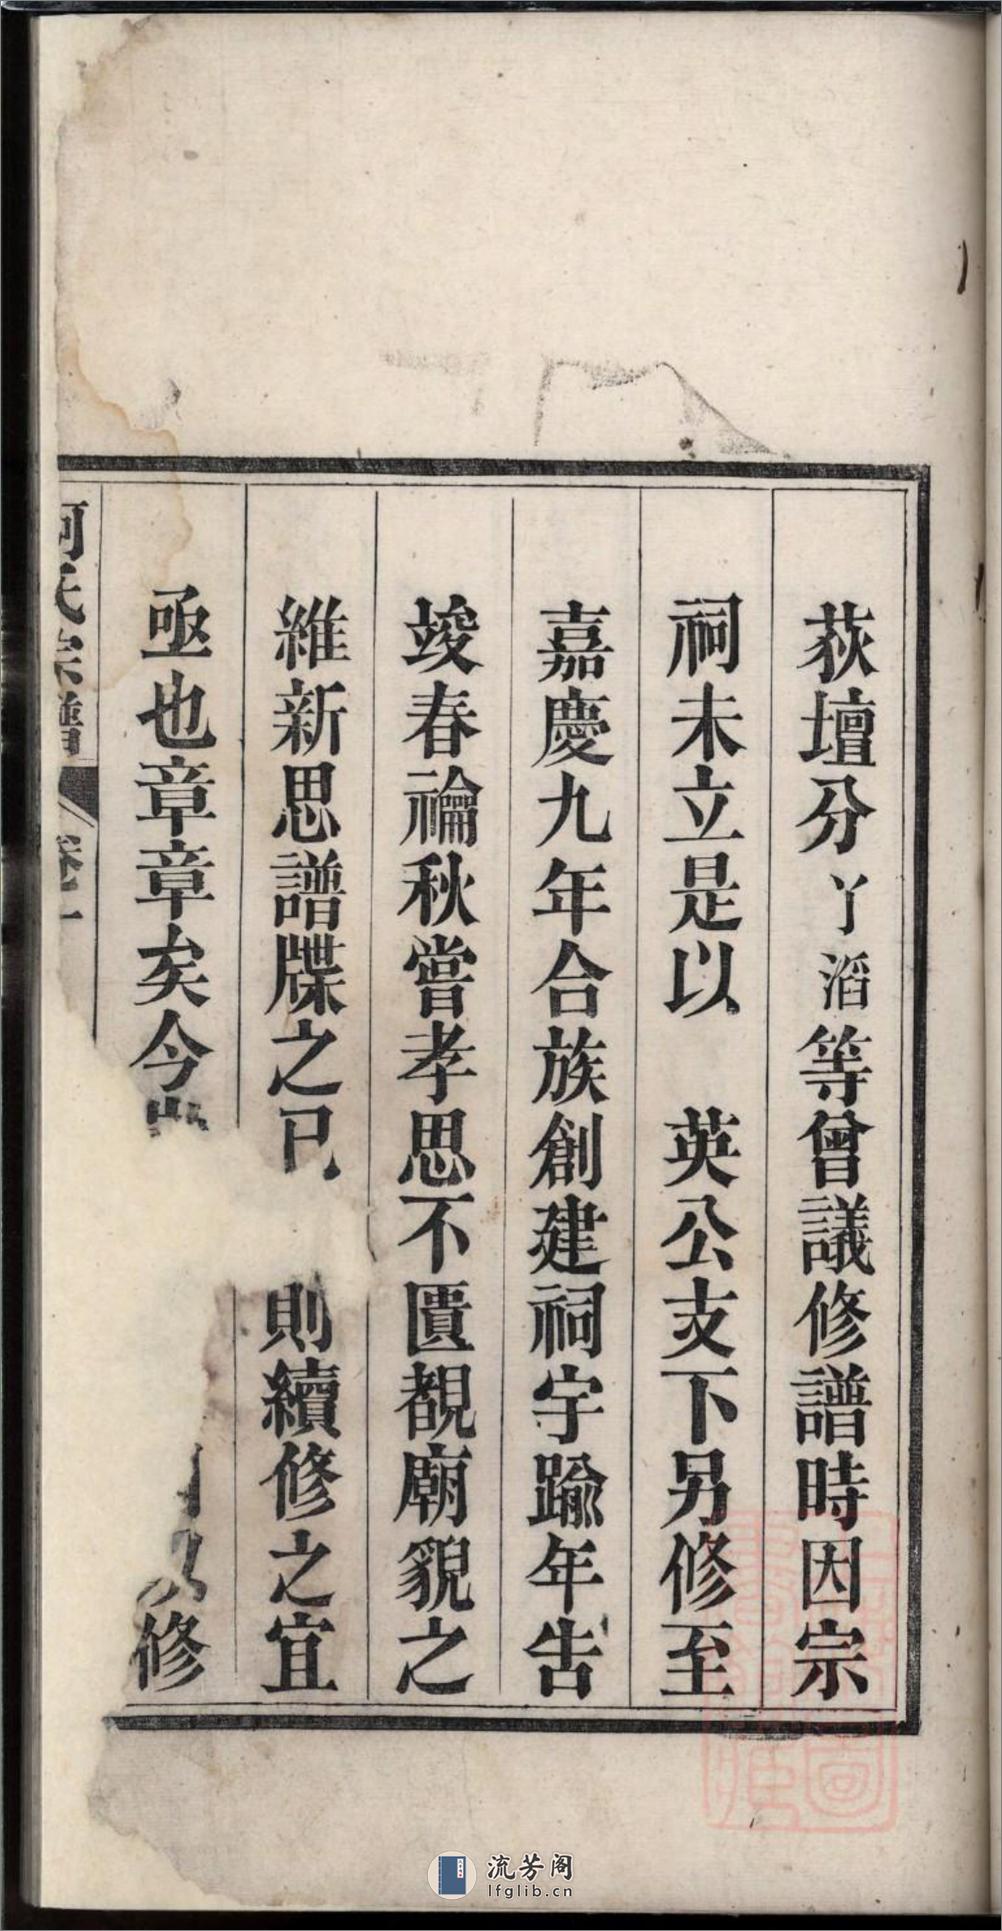 荻壇分丫滔等曾議修譜時因宗
祠未立是以 英公支下另修至
嘉慶九年合族創建祠宇踰年告
竣春禴秋嘗孝思不匱覩廟貌之
維新思譜牒之已 則續修之宜
亟也章章矣今 修
氏宗譜 卷一
流芳阁
lfglib.cn